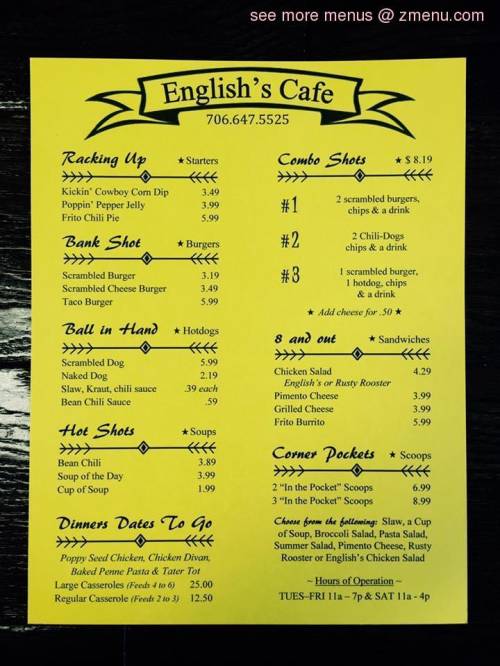 see more menus @ zmenu.com
English's Cafe
706.647.5525
Racking Up ★Starters
Kickin' Cowboy Corn Dip 3.49
Poppin' Pepper Jelly 3.99
Frito Chili Pie 5.99
Bank Shot ★Burgers
Scrambled Burger 3.19
Scrambled Cheese Burger 3.49
Taco Burger 5.99
Ball in Hand ★ Hotdogs
Scrambled Dog 5.99
Naked Dog 2.19
Slaw, Kraut, chili sauce .39 each
Bean Chili Sauce .59
Hot Shots ★Soups
Bean Chili 3.89
Soup of the Day 3.99
Cup of Soup 1.99
Dinners Dates To Go
Poppy Seed Chicken, Chicken Divan,
Baked Penne Pasta & Tater Tot
Large Casseroles (Feeds 4 to 6) 25.00
Regular Casserole (Feeds 2 to 3) 12.50
Combo Shots ★ $ 8.19
#1 2 scrambled burgers,
chips & a drink
#2 2 Chili-Dogs
chips & a drink
#3 1 scrambled burger,
1 hotdog, chips
& a drink
★ Add cheese for .50 ★
8 and out ★ Sandwiches
Chicken Salad 4.29
English's or Rusty Rooster
Pimento Cheese 3.99
Grilled Cheese 3.99
Frito Burrito 5.99
Corner Pockets ★ Scoops
2 “In the Pocket” Scoops 6.99
3 “In the Pocket” Scoops 8.99
Choose from the following: Slaw, a Cup
of Soup, Broccoli Salad, Pasta Salad,
Summer Salad, Pimento Cheese, Rusty
Rooster or English's Chicken Salad
~ Hours of Operation ~
TUES–FRI 11a – 7p & SAT 11a - 4p